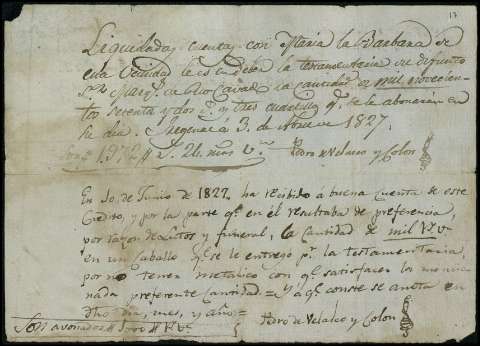 17
Liquidadas cuentas con Maria la Barbana de
esta Vecindad le es en deber la testamentaria del difunto
Sr. Marqs. de Rio Cavado la cantidad de mil novecien-
tos setenta y dos rs. y tres cuartillos qe. se le abonaran en
su dia. 3. de Abril de 1827.
Son 1972 rs. 26 mrs. vn. Pedro de Velasco y Colon
En 10. de Junio de 1827. ha recibido á buena cuenta de este
Credito, y por la parte qe. en él resultaba de preferencia,
por razon de Lutos y funeral, la cantidad de mil rs. vn.
en un Caballo qe. se le entregó pr. la testamentaria,
por no tener metalico con qe. satisfacer la mencio-
nada preferente Cantidad = Y a qe. conste se anota en
dho dia, mes, y año =
Son abonados 1000 rs. vn. Pedro de Velasco y Colon